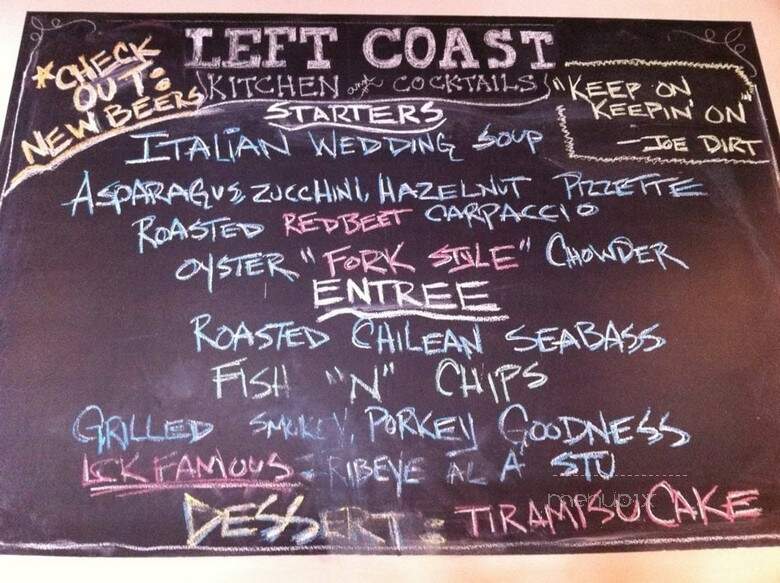 LEFT COAST
KITCHEN and COCKTAILS
*CHECK
OUT:
NEW BEERS
"KEEP ON
KEEPIN' ON
- JOE DIRT
STARTERS
ITALIAN WEDDING SOUP
ASPARAGUS, ZUCCHINI, HAZELNUT PIZZETTE
ROASTED RED BEET CARPACCIO
OYSTER "FORK STYLE" CHOWDER
ENTREE
ROASTED CHILEAN SEABASS
FISH "N" CHIPS
GRILLED SMOKEY, PORKEY GOODNESS
LCK FAMOUS - RIBEYE AL A STU
DESSERT: TIRAMISU CAKE
menupix